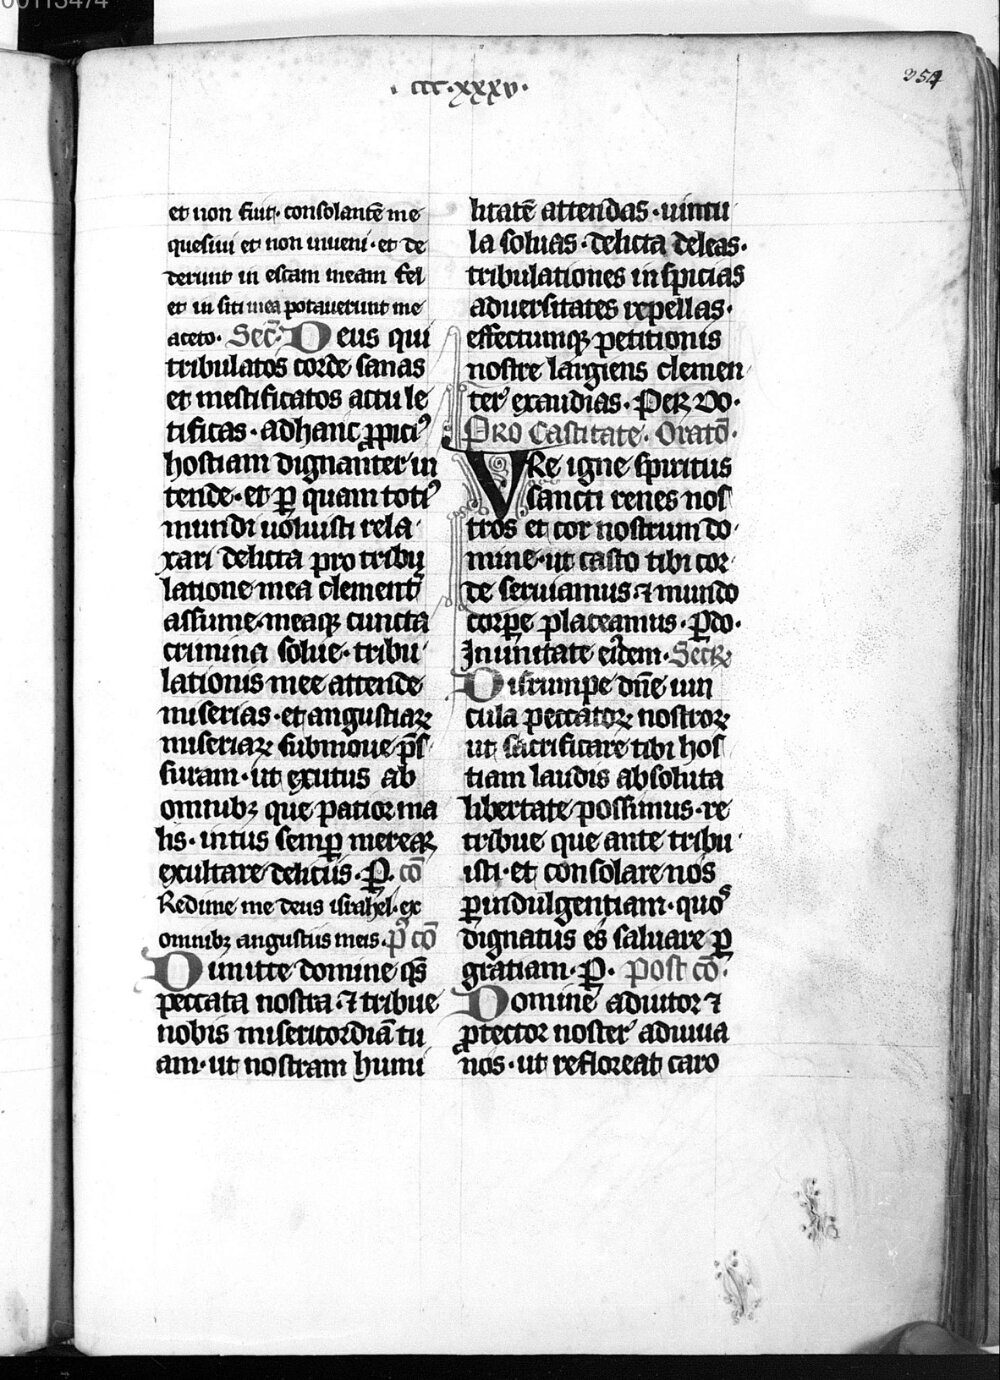 · ccc·xxxv·
354
et non fuit· consolantē me
quesiui et non inueni· et de
derunt in escam meam fel
et in siti mea potauerunt me
aceto· Secr̄· Deus qui
tribulatos corde sanas
et mestificatos actu le
tificas· ad hanc ꝓpici⁹
hostiam dignanter in
tende· et ꝑ quam toti⁹
mundi uoluisti rela
xari delicta pro tribu
latione mea clement̄
assume· meaqꝫ cuncta
crimina solue· tribu
lationis mee attende
miserias· et angustiaꝝ
miseriaꝝ submoue p̄s
suram· ut exutus ab
omnibꝫ que patior ma
lis· intus semꝑ mereaꝛ
exultare deliciis· P̲· cō
Redime me deus israhel· ex
omnibꝫ angustiis meis· p̄ cō
Dimitte domine q̄s
peccata nostra· ⁊ tribue
nobis misericordiā tu
am· ut nostram humi
litatē attendas· uincu
la soluas· delicta deleas·
tribulationes inspicias
aduersitates repellas·
effectumqꝫ petitionis
nostre largiens clemen
ter exaudias· Per do·
Pro castitate· Oratō·
Vre igne spiritus
sancti renes nos
tros et cor nostrum do
mine· ut casto tibi cor
de seruiamus· ⁊ mundo
corꝑe placeamus· ꝑ do·
In unitate eidem· Secr̄
Disrumpe dn̄e uin
cula peccatoꝝ nostroꝝ
ut sacrificare tibi hos
tiam laudis absoluta
libertate possimus· re
tribue que ante tribu
isti· et consolare nos
ꝑ indulgentiam· quos
dignatus es saluare ꝑ
gratiam· P̲· Post cō·
Domine adiutor ⁊
ꝓtector noster adiuua
nos· ut refloreat caro